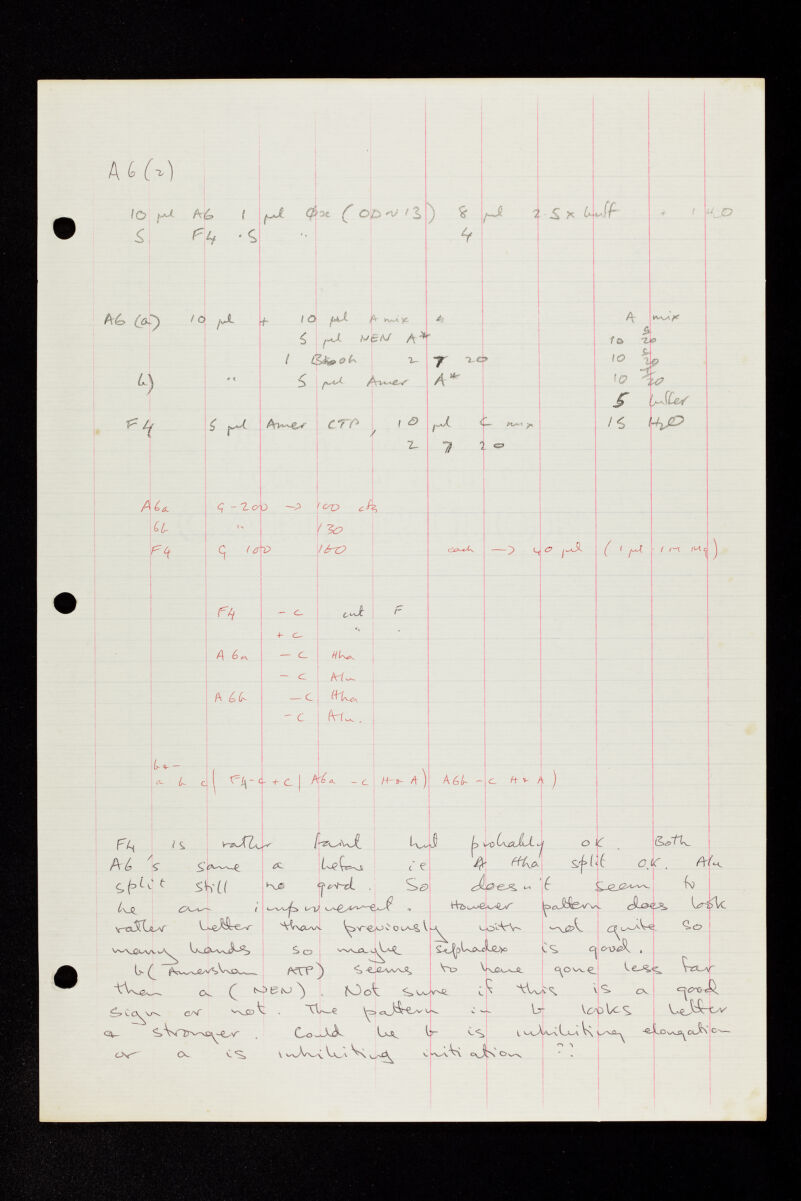 A6(2)
10 µl A6 1 µl Øx (OD~13) 8 µl 2.5x buff + 1 H2O
5 F4 .5 " 4
A6(a) 10 µl + 10 µl A mix A mix
5 µl NEN A* 10 G/20
1 2 7 20 10 C/20
b) " 5 µl Amer A* 10 T/20
5 buffer
F4 5 µl Amer CTP, 10 µl C mix 15 H2O
2 7 20
A6a G-200 → 100 cps
6b " 130
F4 G 100 160 each → 40 µl (1 µl .1M Mg)
F4 - c cut F
+ c " .
A6a - c Hha
- c Alu
A6b - c Hha
- c Alu.
a b c( F4-c + c | A6a - c H + A) A6b - c H + A)
F4 is rather faint but probably OK. Both
A6's same as before ie Hha split O.K. Alu
split still no good. So doesn't seem to
be an improvement. However pattern does look
rather better than previously with not quite so
many bands so maybe sephadex is good.
b(Amersham ATP) seems to have gone less far
than a (NEN). Not sure if this is a good
sign or not. The pattern in b looks better
& stronger. Could be b is inhibiting elongation
or a is inhibiting initiation ?!